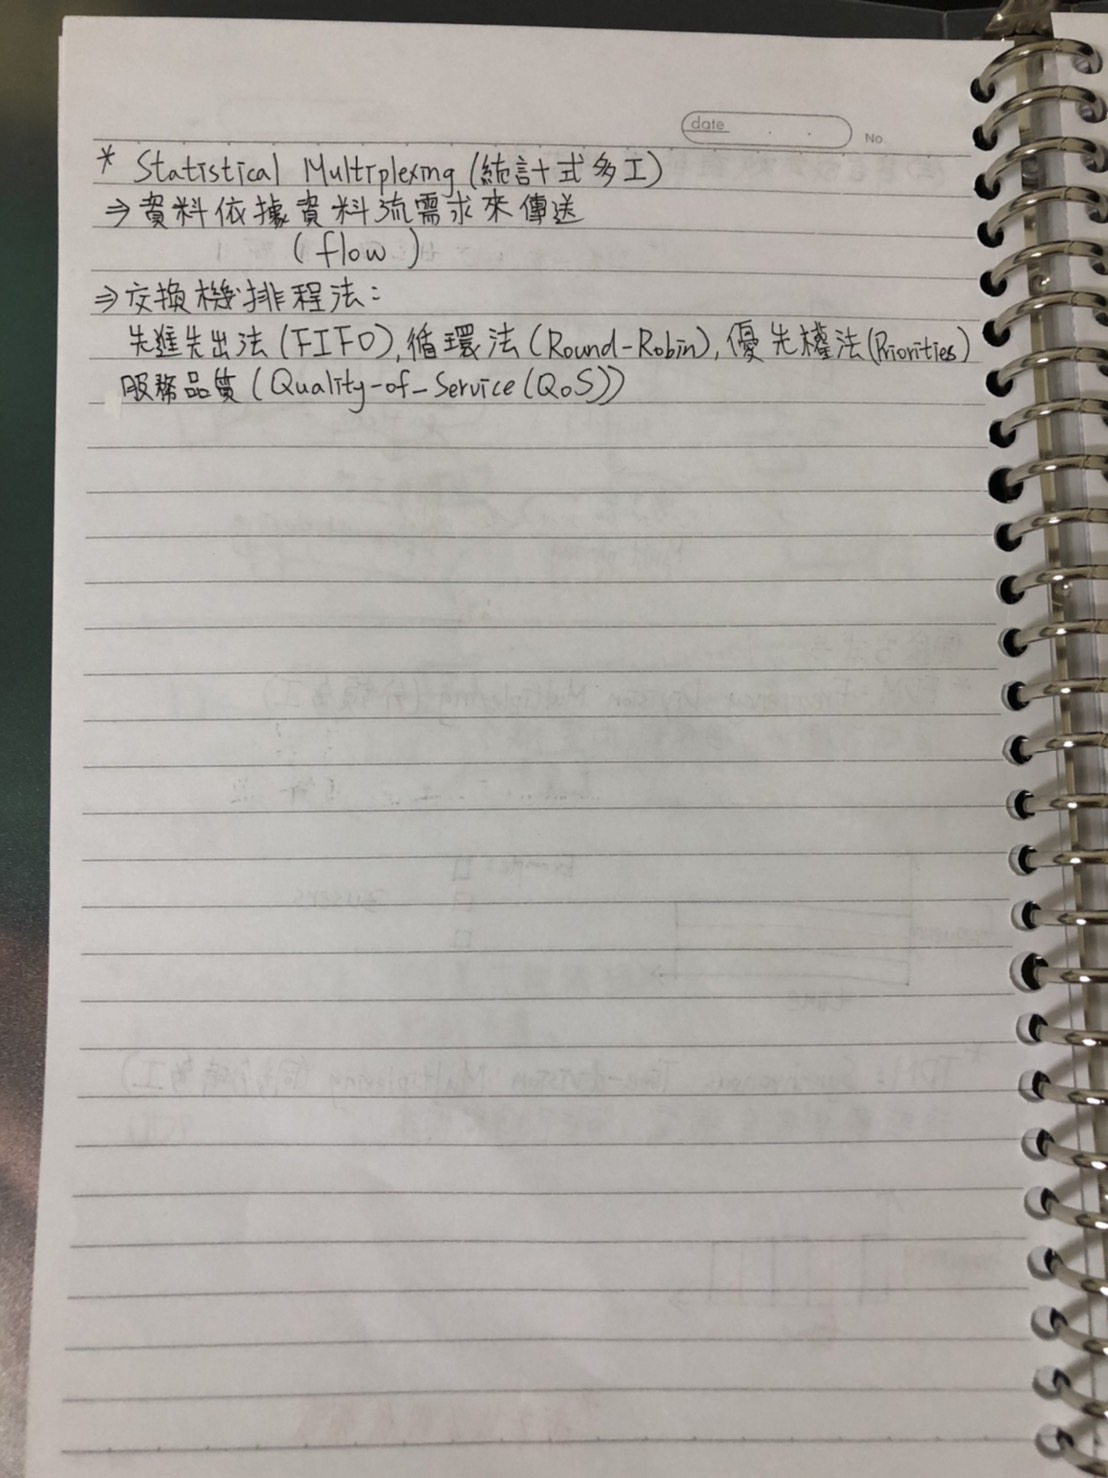 date
No.
* Statistical Multiplexing (統計式多工)
⇒ 資料依據資料流需求來傳送
(flow)
⇒ 交換機排程法:
先進先出法(FIFO), 循環法(Round-Robin), 優先權法(Priorities)
服務品質(Quality-of-Service(QoS))